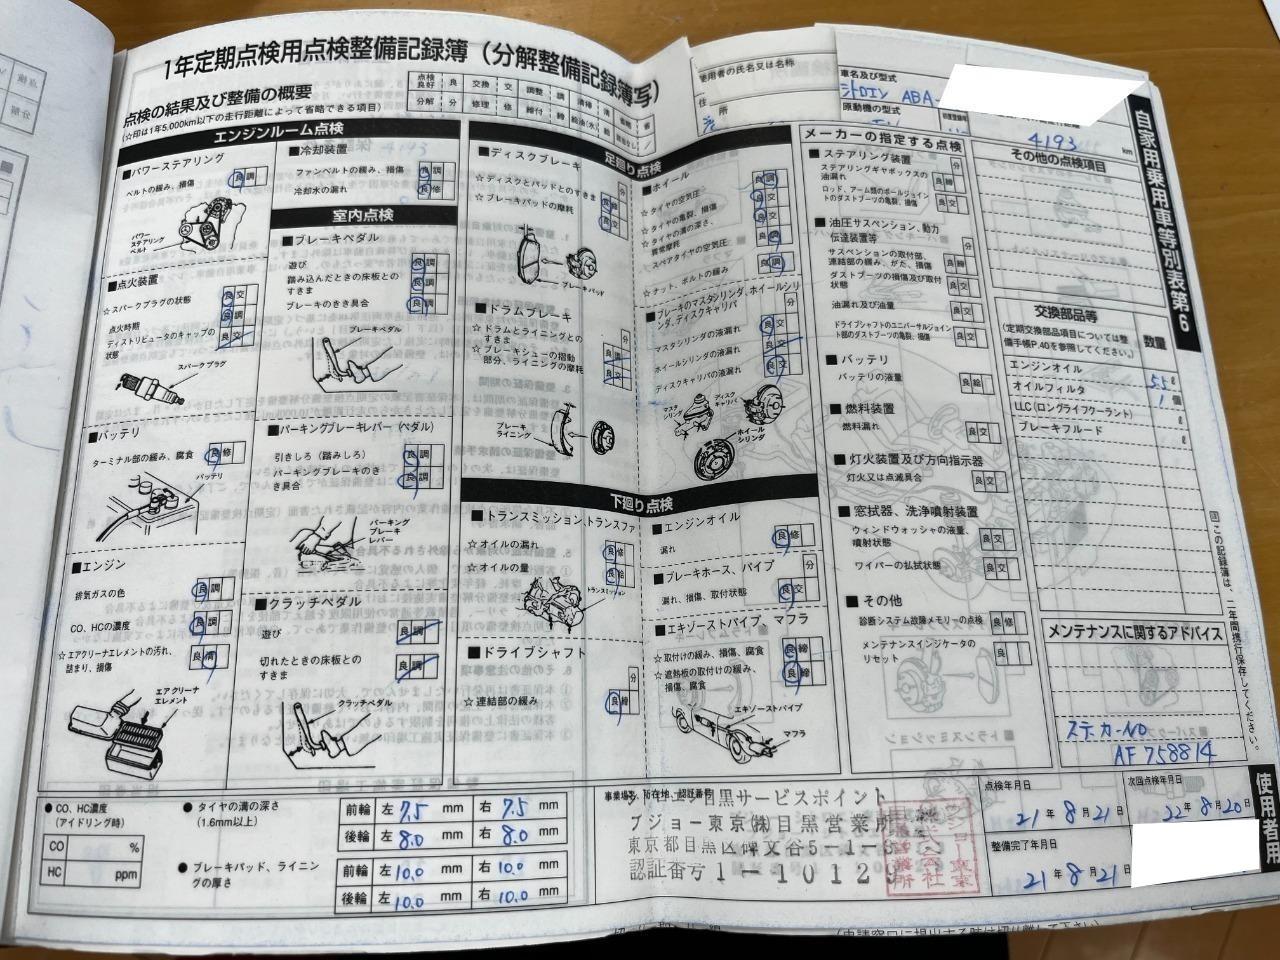 1年定期点検用点検整備記録簿（分解整備記録簿写）
点検の結果及び整備の概要
（☆印は1年5,000km以下の走行距離によって省略できる項目）
点検良好 良 交換 交 調整 調 清掃 清 省略 省
分解 分 修理 修 締付 締 給油(水) 給 該当なし
使用者の氏名又は名称
住
車名及び型式
シトロエン ABA-
原動機の型式
4193 km
自家用乗用車等別表第6
エンジンルーム点検
■パワーステアリング
ベルトの緩み、損傷 良 調
パワーステアリングベルト
■点火装置
☆スパークプラグの状態 良 交
点火時期 良 調
ディストリビュータのキャップの状態 良 交
スパークプラグ
■バッテリ
ターミナル部の緩み、腐食 良 修
バッテリ
■エンジン
排気ガスの色 良 調
CO、HCの濃度 良 調
☆エアクリーナエレメントの汚れ、詰まり、損傷 良 清
エアクリーナエレメント
■冷却装置
ファンベルトの緩み、損傷 良 調
冷却水の漏れ 良 修
室内点検
■ブレーキペダル
遊び 良 調
踏み込んだときの床板とのすきま 良 調
ブレーキのきき具合 良 調
ブレーキペダル
■パーキングブレーキレバー（ペダル）
引きしろ（踏みしろ） 良 調
パーキングブレーキのきき具合 良 調
パーキングブレーキレバー
■クラッチペダル
遊び 良 調
切れたときの床板とのすきま 良 調
クラッチペダル
足廻り点検
■ディスクブレーキ
☆ディスクとパッドとのすきま
☆ブレーキパッドの摩耗 良 交
ブレーキパッド
■ドラムブレーキ
☆ドラムとライニングとのすきま 良 調
☆ブレーキシューの摺動部分、ライニングの摩耗 良 交
ブレーキライニング
■ホイール
☆タイヤの空気圧 良 調
☆タイヤの亀裂、損傷 良 交
☆タイヤの溝の深さ、異常摩耗 良 交
☆スペアタイヤの空気圧 良 調
☆ナット、ボルトの緩み 良 調
■ブレーキのマスタシリンダ、ホイールシリンダ、ディスクキャリパ
マスタシリンダの液漏れ 良 交
ホイールシリンダの液漏れ 良 交
ディスクキャリパの液漏れ 良 交
マスタシリンダ
ディスクキャリパ
ホイールシリンダ
下廻り点検
■トランスミッション、トランスファ
☆オイルの漏れ 良 修
☆オイルの量 良 給
トランスミッション
■ドライブシャフト
☆連結部の緩み 良 締
■エンジンオイル
漏れ 良 修
■ブレーキホース、パイプ
漏れ、損傷、取付状態 良 交
■エキゾーストパイプ、マフラ
☆取付けの緩み、損傷、腐食 良 締
☆遮熱板の取付けの緩み、損傷、腐食 良 締
エキゾーストパイプ
マフラ
メーカーの指定する点検
■ステアリング装置
ステアリングギヤボックスの油漏れ 良 締
ロッド、アーム類のボールジョイントのダストブーツの亀裂、損傷 良 交
■油圧サスペンション、動力伝達装置等
サスペンションの取付部、連結部の緩み、がた、損傷 良 締
ダストブーツの損傷及び取付状態 良 交
油漏れ及び油量 良 交
ドライブシャフトのユニバーサルジョイント部のダストブーツの亀裂、損傷 良 交
■バッテリ
バッテリの液量 良 給
■燃料装置
燃料漏れ 良 交
■灯火装置及び方向指示器
灯火又は点滅具合 良 交
■窓拭器、洗浄噴射装置
ウィンドウォッシャの液量、噴射状態 良 交
ワイパーの払拭状態 良 交
■その他
診断システム故障メモリーの点検 良 修
メンテナンスインジケータのリセット 良
その他の点検項目
交換部品等 数量
（定期交換部品項目については整備手帳P.40を参照してください。）
エンジンオイル 5.5 ℓ
オイルフィルタ 1 個
LLC（ロングライフクーラント） ℓ
ブレーキフルード ℓ
メンテナンスに関するアドバイス
ステッカーNO
AF758814
注 この記録簿は、二年間携行保存してください。
使用者用
●CO、HC濃度
（アイドリング時）
CO %
HC ppm
●タイヤの溝の深さ
（1.6mm以上）
前輪 左 7.5 mm 右 7.5 mm
後輪 左 8.0 mm 右 8.0 mm
●ブレーキパッド、ライニングの厚さ
前輪 左 10.0 mm 右 10.0 mm
後輪 左 10.0 mm 右 10.0 mm
事業場名、所在地、認証番号
シトロエン目黒サービスポイント
プジョー東京(株)目黒営業所
東京都目黒区碑文谷5-1-8
認証番号1-10129
点検年月日
21年8月21日
次回点検年月日
22年8月20日
整備完了年月日
21年8月21日